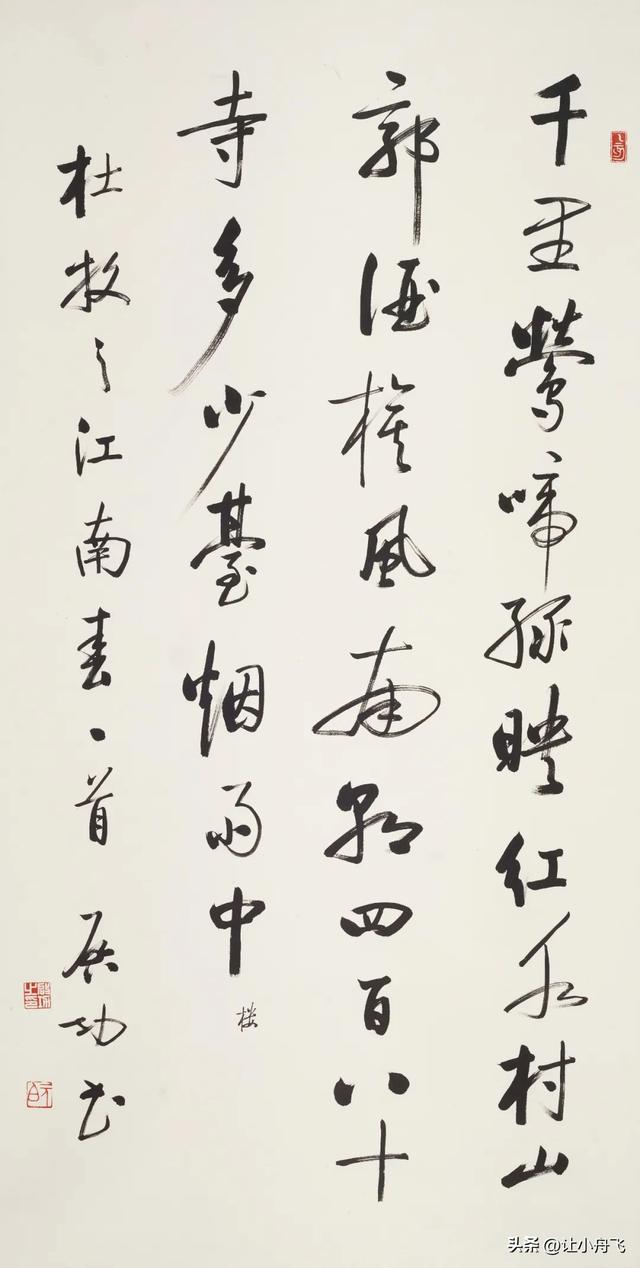 千里鶯啼綠映紅水村山
郭酒旗風南朝四百八十
寺多少臺烟雨中
楼
杜牧之江南春一首 启功书
头条 @让小舟飞